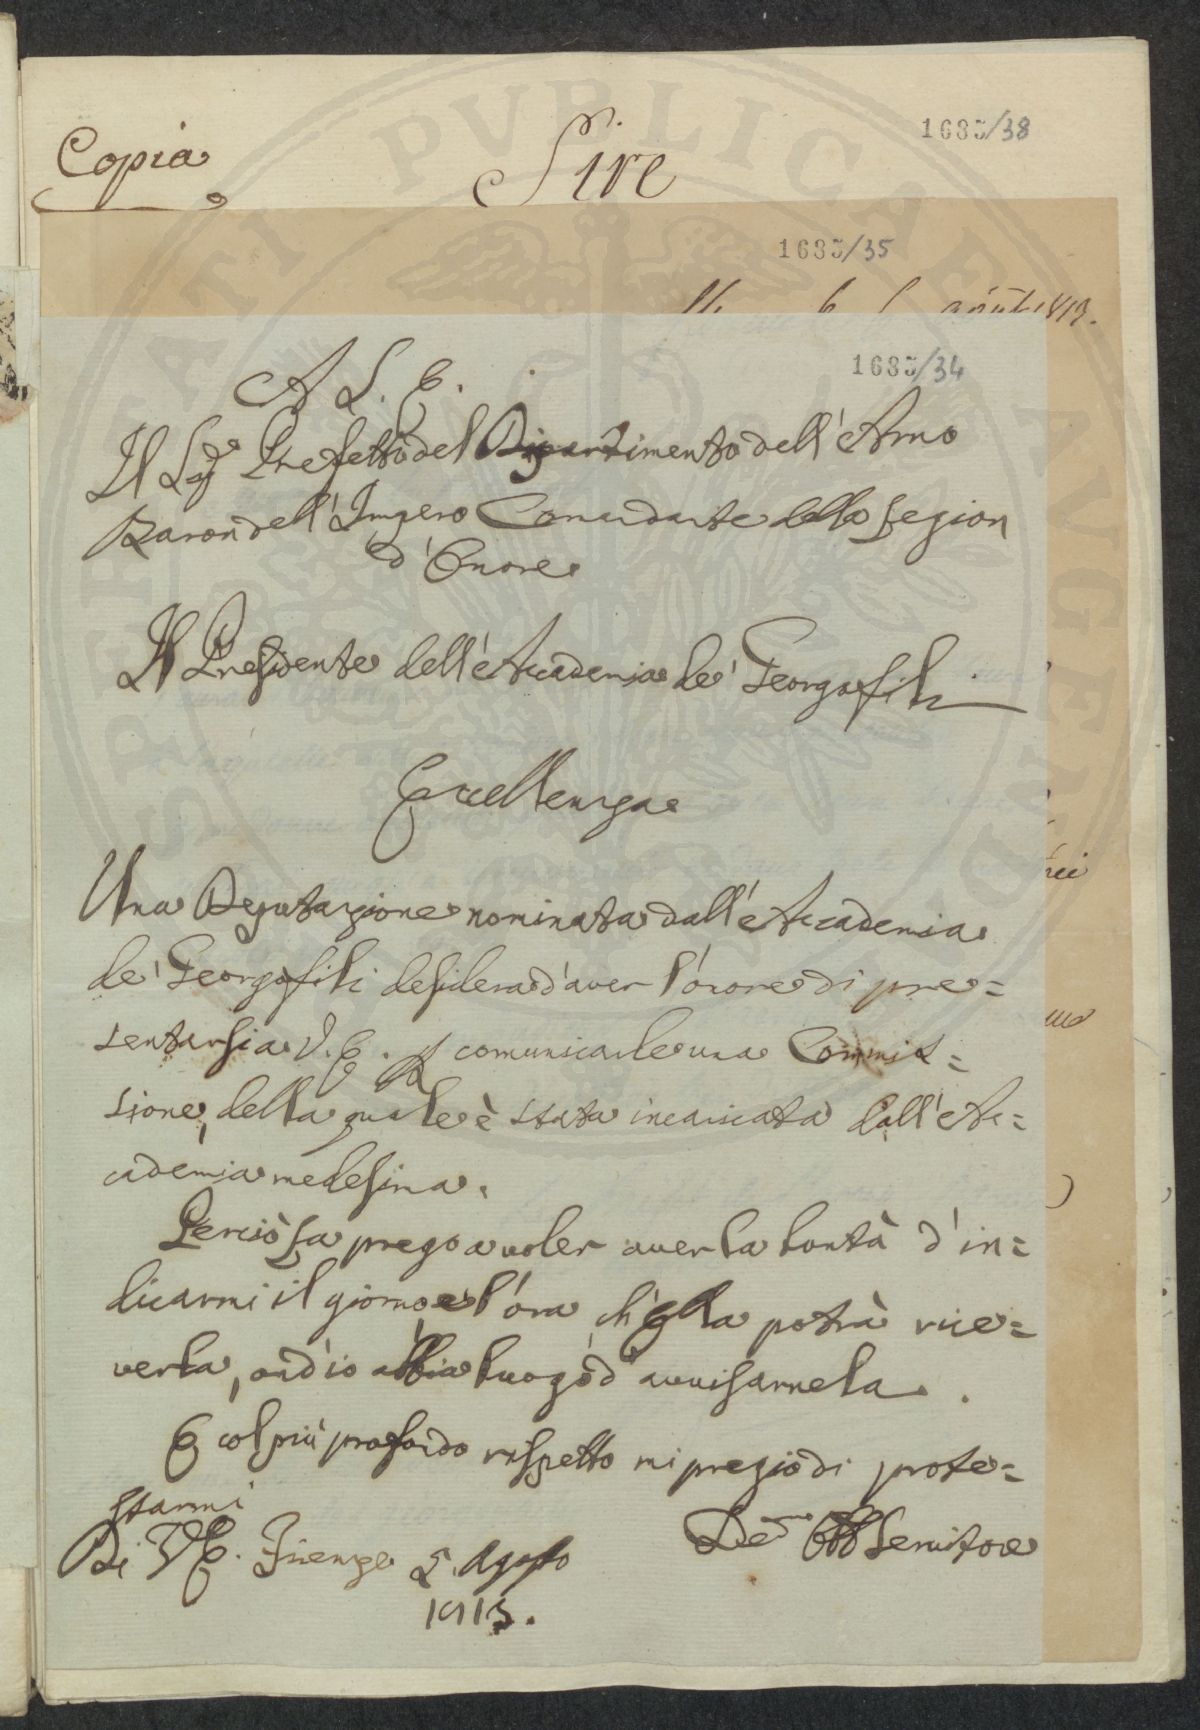 Copia
Sire
1685/38
1685/35
août 1813.
1685/34
A S. E.
Il Sigr Prefetto del Dipartimento dell'Arno
Baron dell'Impero Comandante della Legion
d'Onore
Il Presidente dell'Accademia de' Georgofili
Eccellenza
Una Deputazione nominata dall'Accademia
de' Georgofili desidera d'aver l'onore di pre=
sentarsi a V. E. p comunicarle una Commis=
sione, della quale è stata incaricata dall'Ac=
cademia medesima.
Perciò La prego a voler aver la bontà d'in=
dicarmi il giorno e l'ora ch'Ella potrà rice=
verla, ond'io abbia luogo d'avvisarnela.
E col più profondo rispetto mi pregio di prote=
starmi
Di V. E. Firenze 5. Agosto
1813.
Devmo Obb Servitore
PVBLICAE